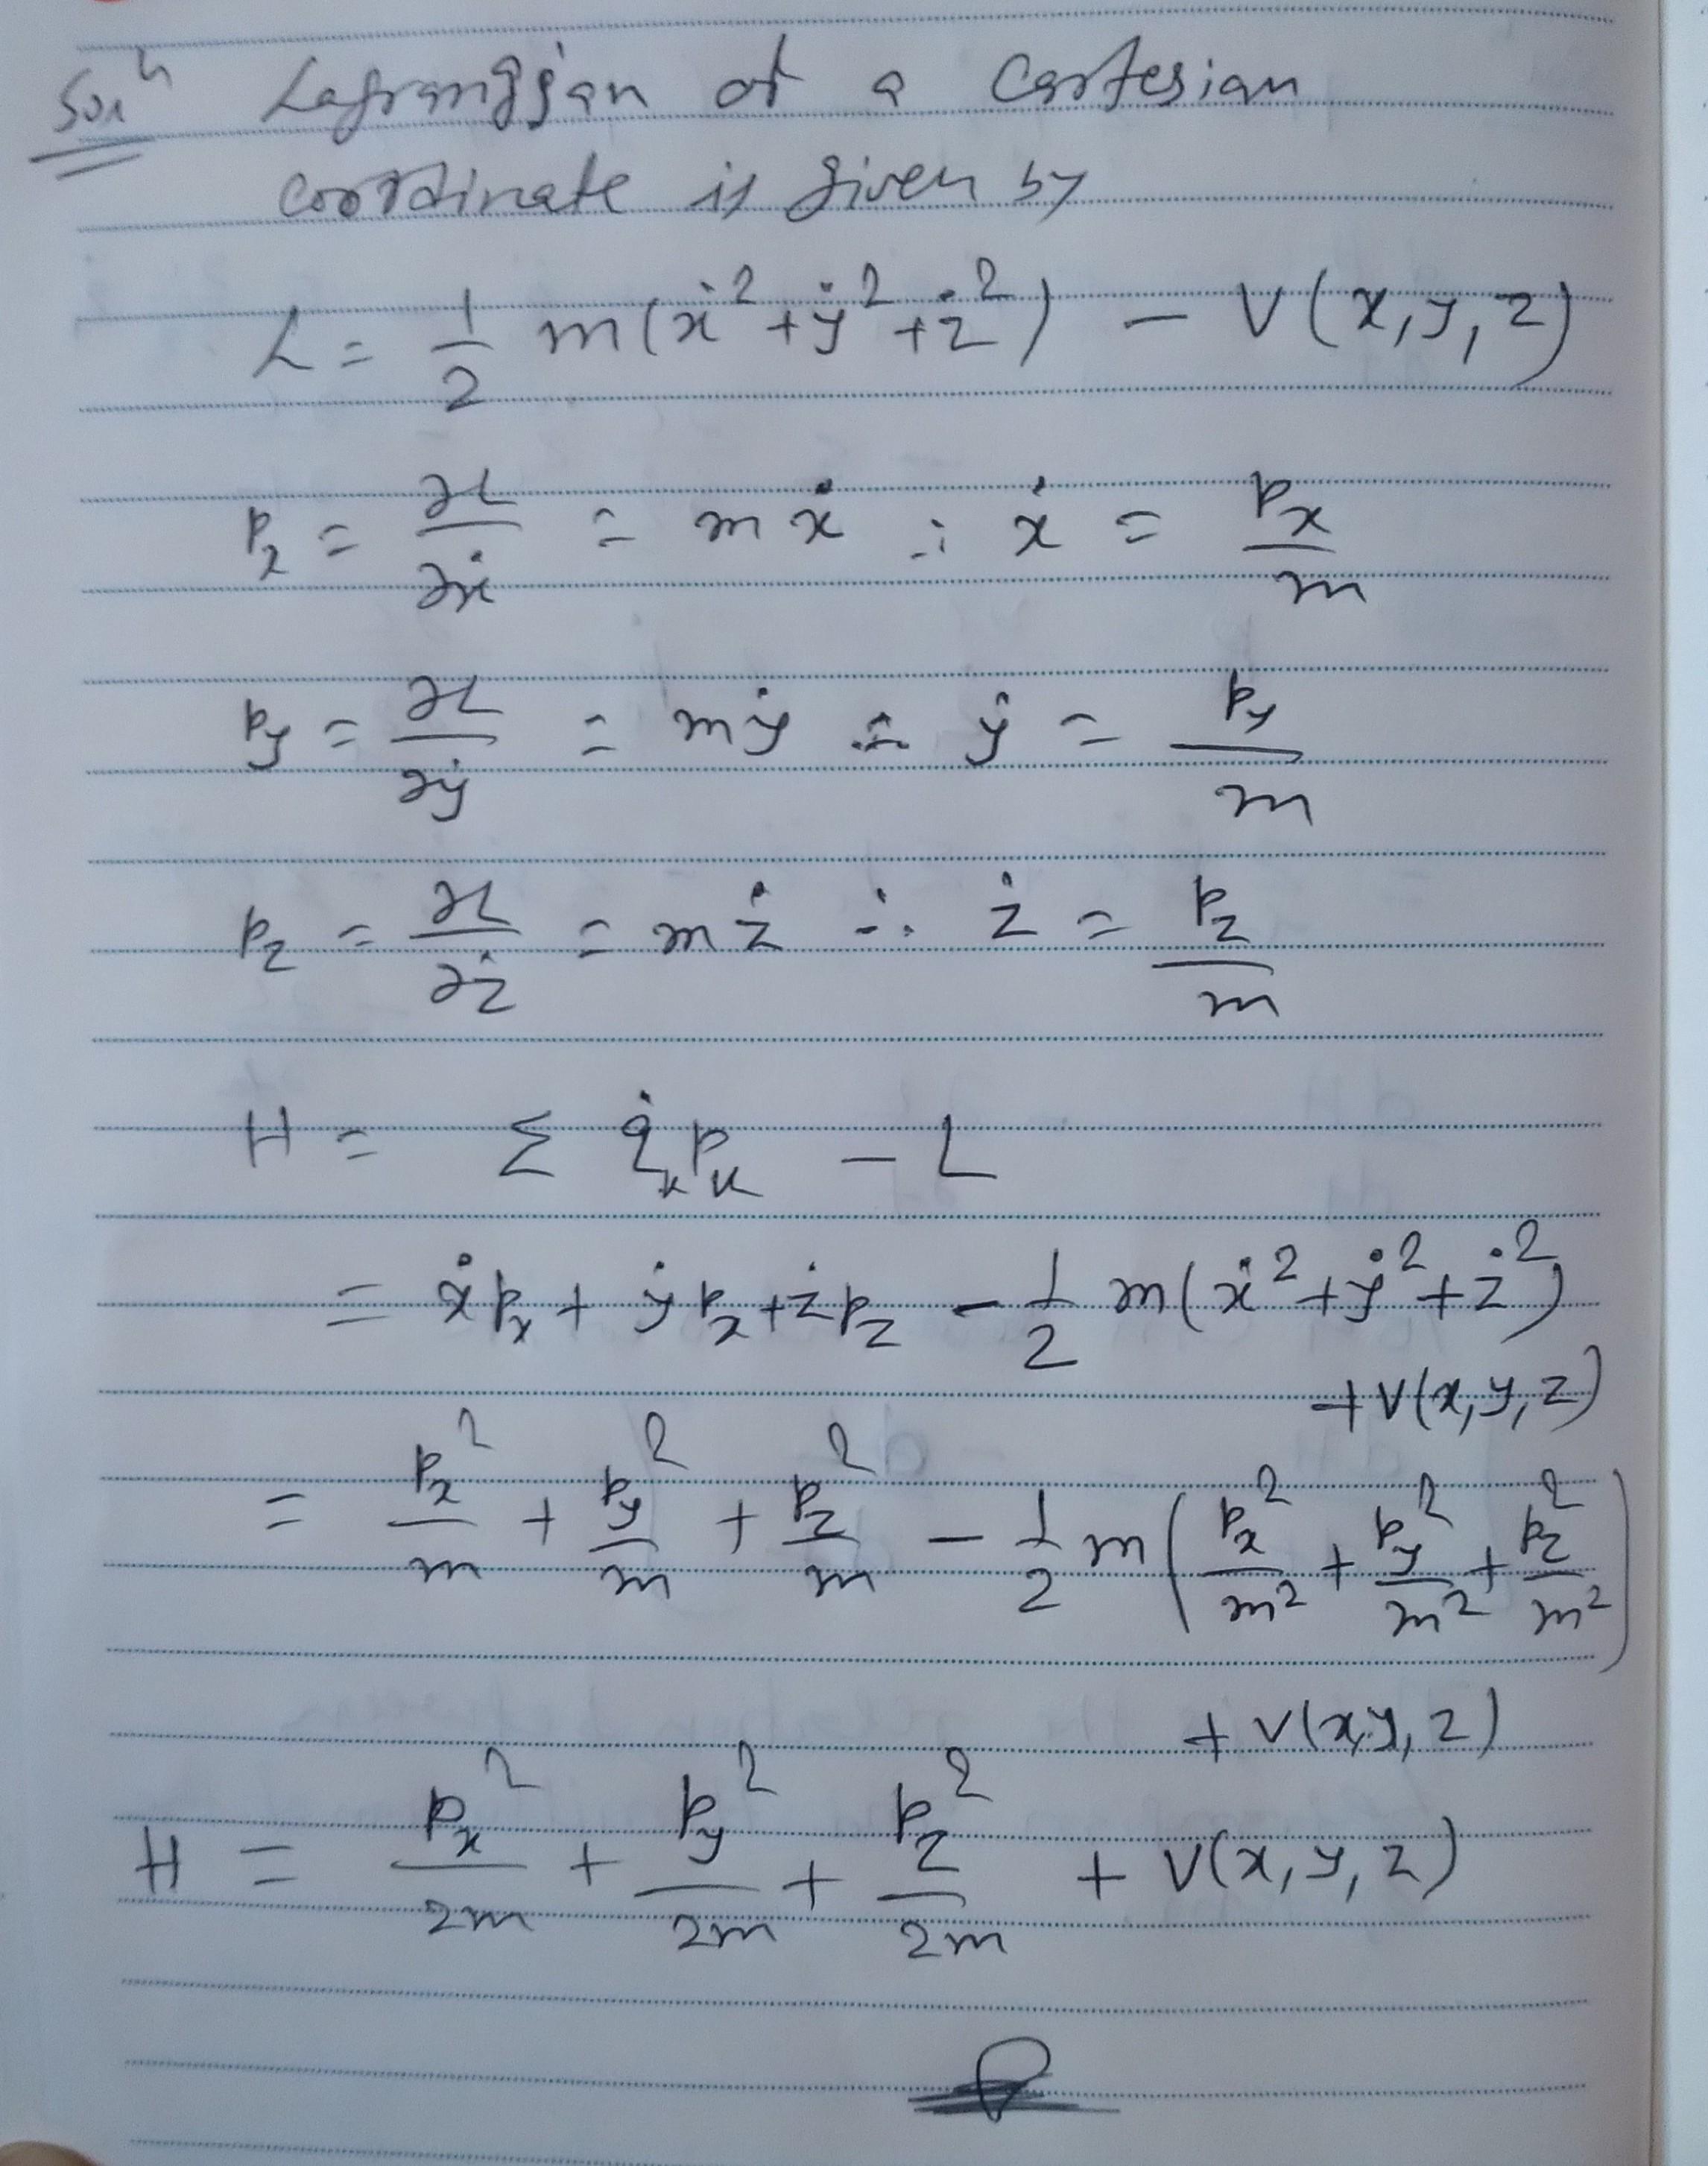 Solⁿ Lagrangian of a Cartesian
coordinate is given by
L = 1/2 m(ẋ² + ẏ² + ż²) − V(x, y, z)
pₓ = ∂L/∂ẋ = mẋ ∴ ẋ = pₓ/m
p_y = ∂L/∂ẏ = mẏ ∴ ẏ = p_y/m
p_z = ∂L/∂ż = mż ∴ ż = p_z/m
H = Σ q̇ₖpₖ − L
= ẋpₓ + ẏpₓ + żp_z − 1/2 m(ẋ² + ẏ² + ż²)
+ V(x, y, z)
= pₓ²/m + p_y²/m + p_z²/m − 1/2 m(pₓ²/m² + p_y²/m² + p_z²/m²)
+ V(x, y, z)
H = pₓ²/2m + p_y²/2m + p_z²/2m + V(x, y, z)